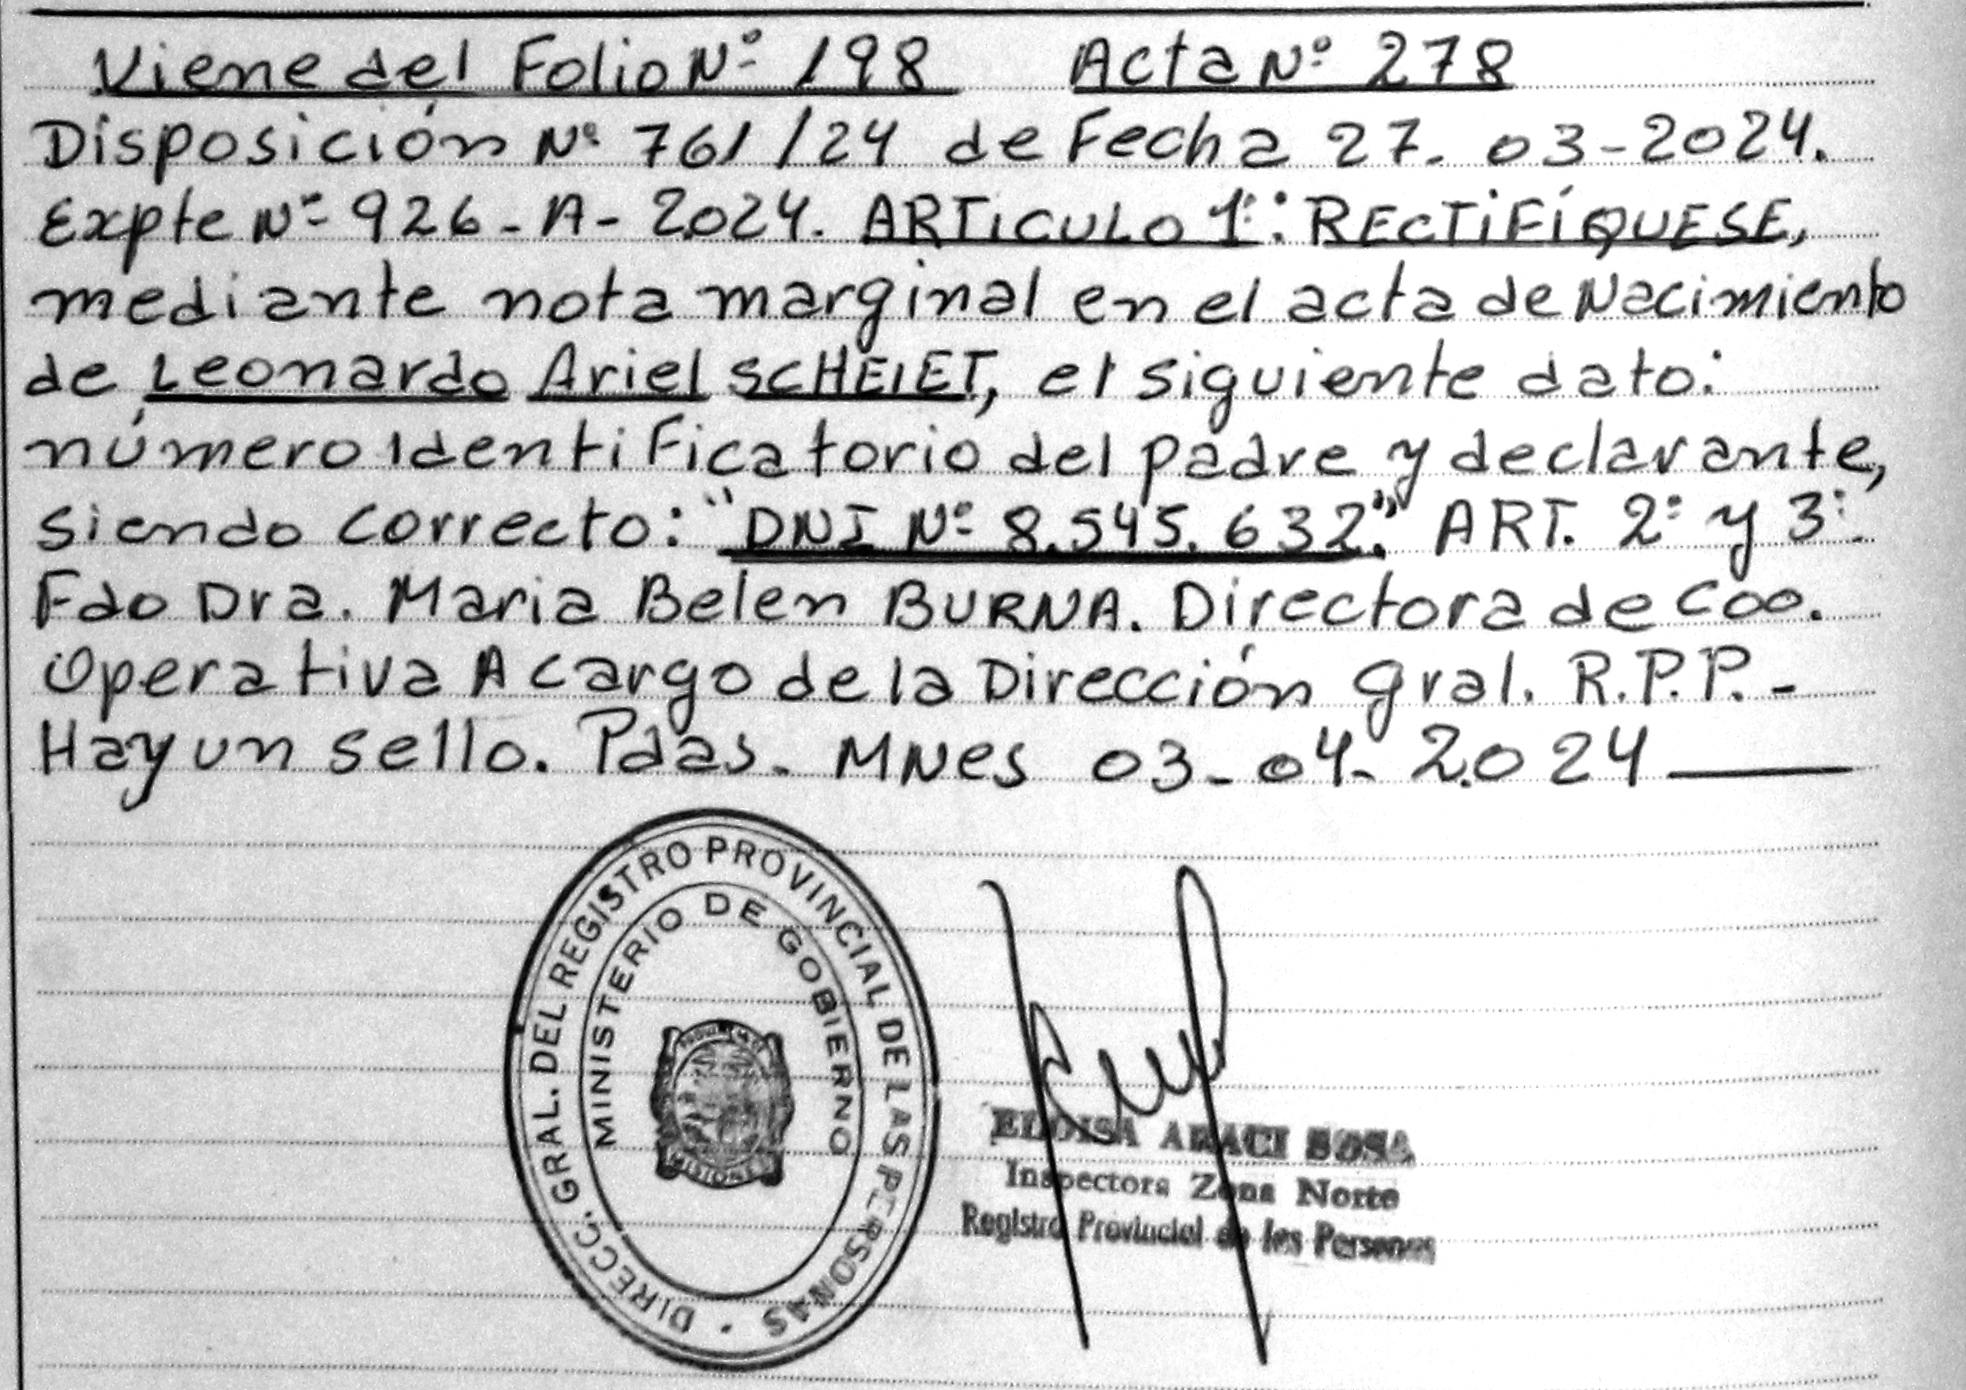 Viene del Folio Nº 198 Acta Nº 278
Disposición Nº 761/24 de Fecha 27.03-2024.
Expte Nº 926-A-2024. ARTICULO 1º: RECTIFÍQUESE,
mediante nota marginal en el acta de Nacimiento
de Leonardo Ariel SCHEIET, el siguiente dato:
número identificatorio del padre y declarante,
siendo correcto: "DNI Nº 8.545.632." ART. 2º y 3º.
Fdo Dra. Maria Belen BURNA. Directora de Coo.
Operativa A cargo de la Dirección Gral. R.P.P.-
Hay un sello. Pdas. MNes 03-04-2024
DIRECC. GRAL. DEL REGISTRO PROVINCIAL DE LAS PERSONAS
MINISTERIO DE GOBIERNO
MISIONES
ELOISA ARACI SOSA
Inspectora Zona Norte
Registro Provincial de las Personas